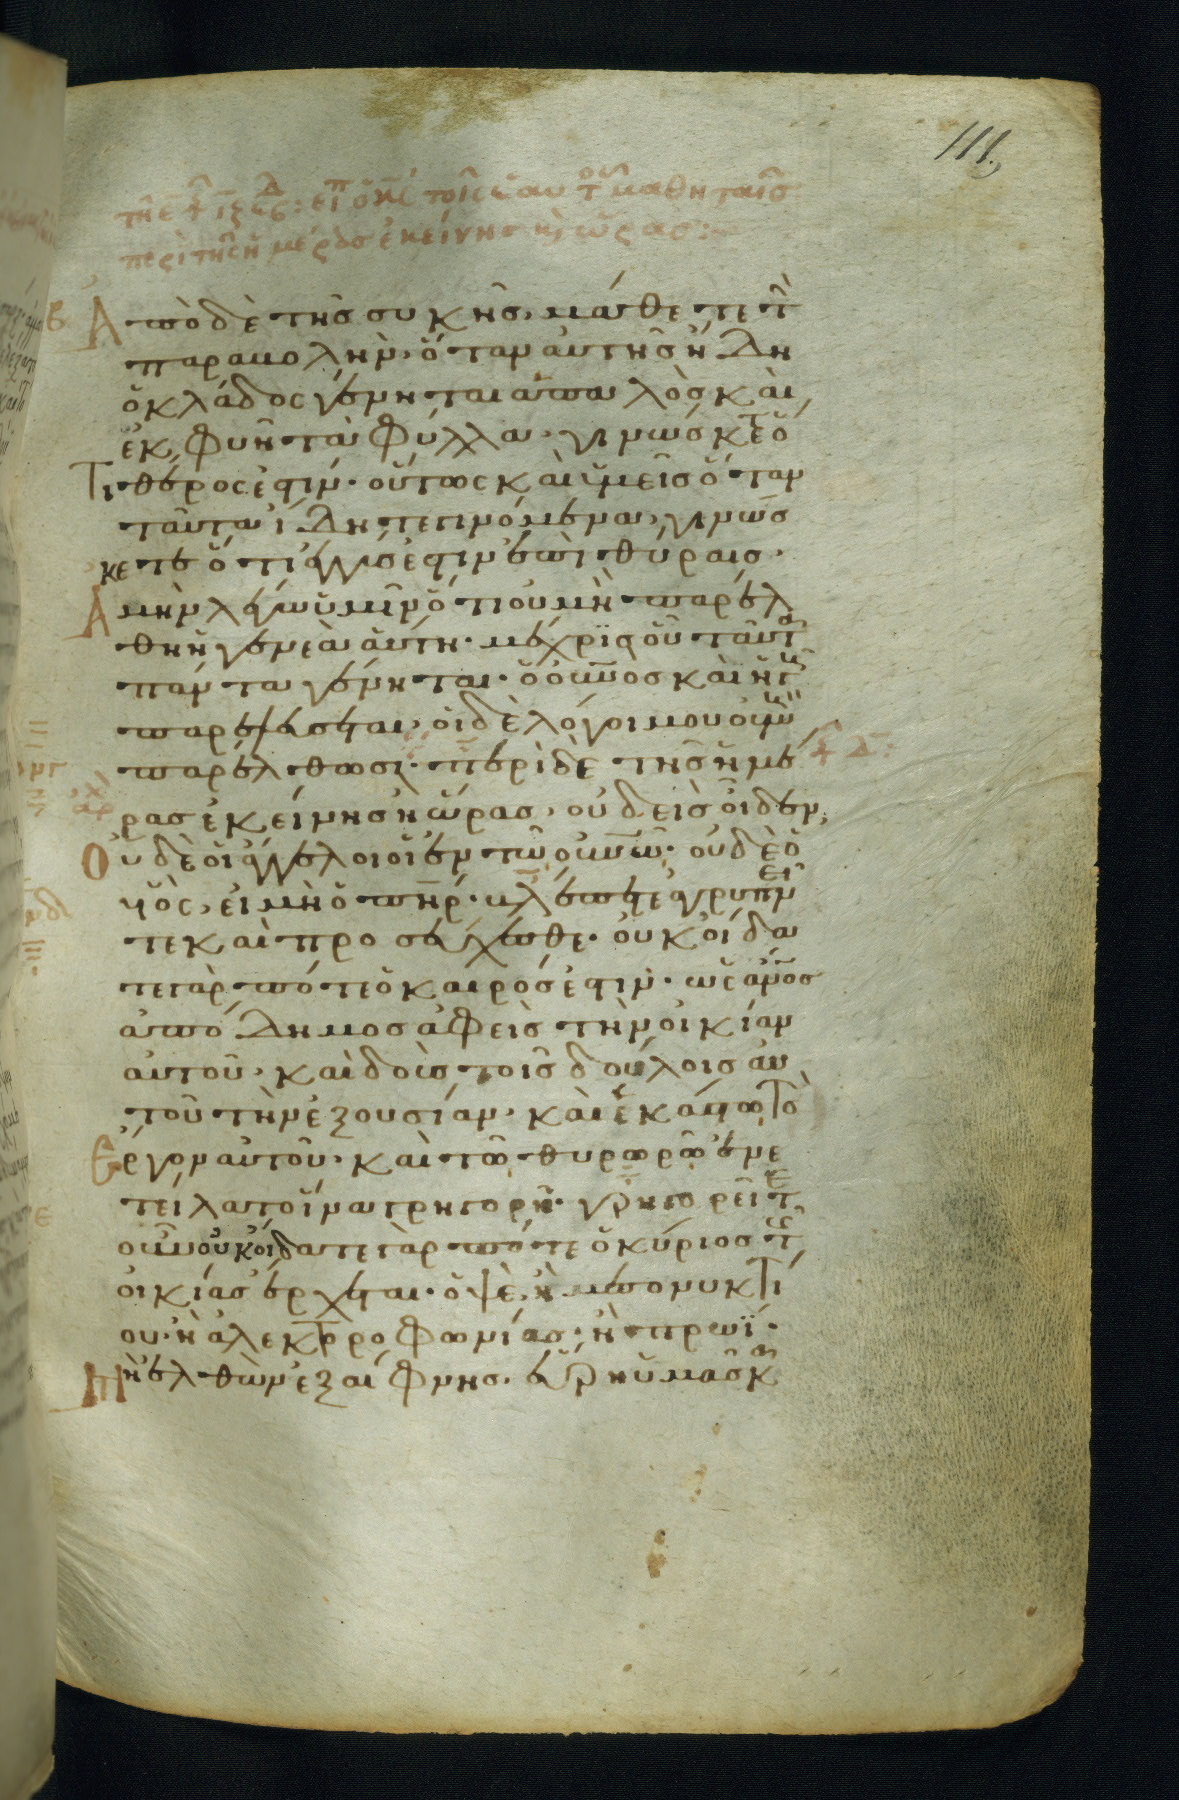 111
περὶ τῆς ἡμέρας ἐκείνης κ(αὶ) ὥρας:
Ἀπὸ δὲ τῆς συκῆς, μάθετε τ(ὴν)
παραβολήν· ὅταν αὐτῆς ἤδη
ὁ κλάδος γένηται ἁπαλὸς καὶ
ἐκφυῇ τὰ φύλλα· γινώσκετε ὅ
τι θέρος ἐστίν· οὕτως καὶ ὑμεῖς ὅταν
ταῦτα ἴδητε γινόμενα, γινώσ
κετε ὅτι ἐγγύς ἐστιν ἐπὶ θύραις·
Ἀμὴν λέγω ὑμῖν ὅτι οὐ μὴ παρέλ
θῃ ἡ γενεὰ αὕτη· μέχρις οὗ ταῦτα
πάντα γένηται· ὁ οὐνος καὶ ἡ γῆ
παρελεύσεται, οἱ δὲ λόγοι μου οὐ μὴ
παρέλθωσι· περὶ δὲ τῆς ἡμέ
ρας ἐκείνης ἢ ὥρας, οὐδεὶς οἶδεν,
Οὐδὲ οἱ ἄγγελοι οἱ ἐν τῷ οὐνῷ· οὐδὲ ὁ
υἱός, εἰ μὴ ὁ πηρ· βλέπετε ἀγρυπνεῖ
τε καὶ προσεύχεσθε· οὐκ οἴδα
τε γὰρ πότε ὁ καιρός ἐστιν· ὡς ἀνος
ἀπόδημος ἀφεὶς τὴν οἰκίαν
αὐτοῦ· καὶ δοὺς τοῖς δούλοις αὐ
τοῦ τὴν ἐξουσίαν· καὶ ἑκάστῳ τὸ
ἔργον αὐτοῦ· καὶ τῷ θυρωρῷ ἐνε
τείλατο ἵνα γρηγορῇ· γρηγορεῖτε
οὖν οὐκ οἴδατε γὰρ πότε ὁ κύριος τῆς
οἰκίας ἔρχεται· ὀψέ, ἢ μεσονυκτί
ου· ἢ ἀλεκτοροφωνίας· ἢ πρωΐ·
Μὴ ἐλθὼν ἐξαίφνης· εὕρῃ ὑμᾶς κα